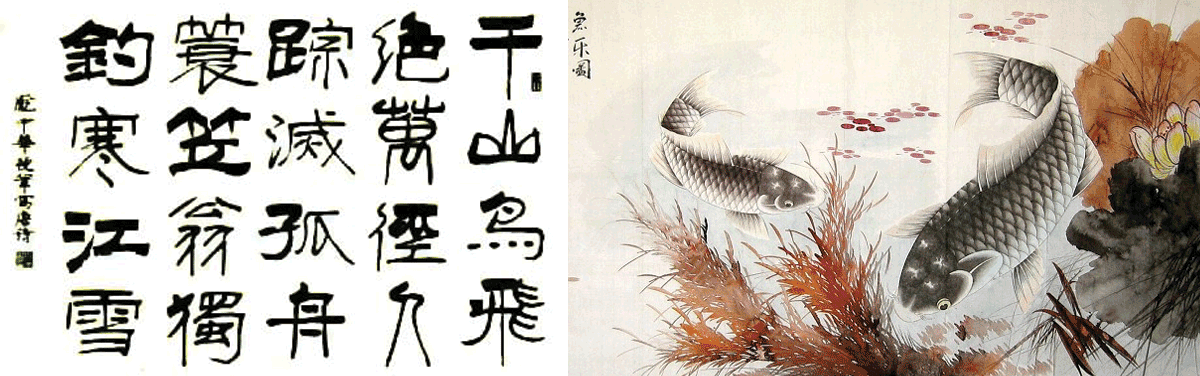 千山鳥飛
絶萬徑人
踪滅孤舟
蓑笠翁獨
釣寒江雪
中華筆寫唐詩
魚乐圖